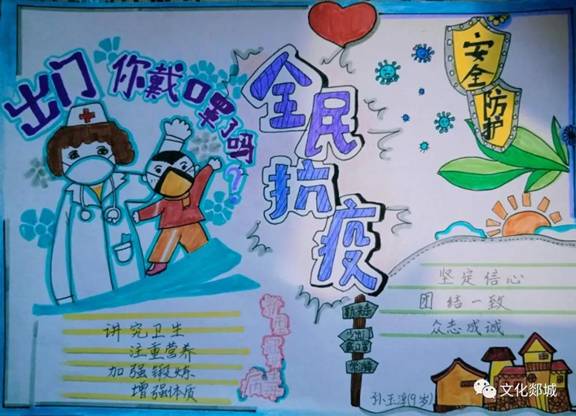 出门 你戴口罩了吗?
全民抗疫
安全防护
讲究卫生
注重营养
加强锻炼
增强体质
坚定信心
团结一致
众志成诚
文化郯城